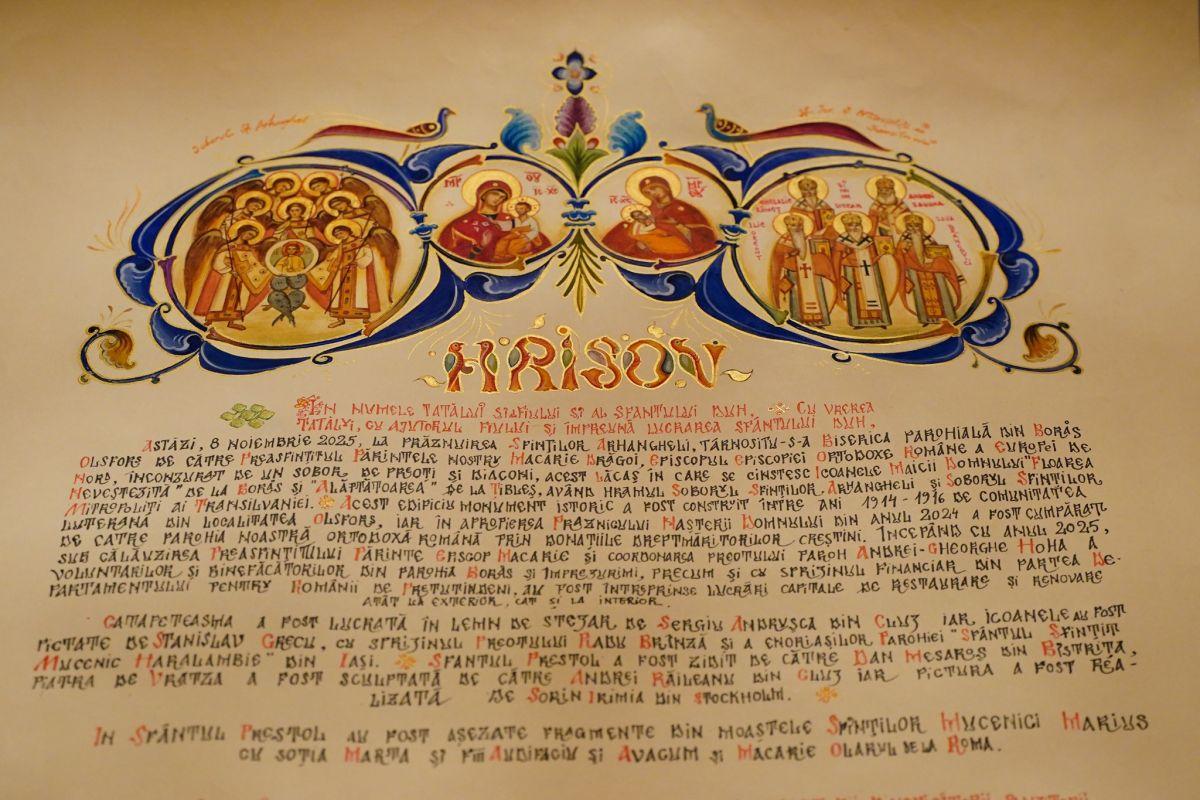 ΜΡ ΘΥ
IC XC
IC XC ΜΡ ΘΥ
HRISOV
ÎN NUMELE TATĂLUI ȘI AL FIULUI ȘI AL SFÂNTULUI DUH, CU VREREA
TATĂLUI, CU AJUTORUL FIULUI ȘI ÎMPREUNĂ LUCRAREA SFÂNTULUI DUH,
ASTĂZI, 8 NOIEMBRIE 2025, LA PRĂZNUIREA SFINȚILOR ARHANGHELI, TÂRNOSITU-S-A BISERICA PAROHIALĂ DIN BORÅS
OLSFORS DE CĂTRE PREASFINȚITUL PĂRINTELE NOSTRU MACARIE DRĂGOI, EPISCOPUL EPISCOPIEI ORTODOXE ROMÂNE A EUROPEI DE
NORD, ÎNCONJURAT DE UN SOBOR DE PREOȚI ȘI DIACONI, ACEST LĂCAȘ ÎN CARE SE CINSTESC ICOANELE MAICII DOMNULUI "FLOAREA
NEVESTEJITĂ" DE LA BORÅS ȘI "ALĂPTĂTOAREA" DE LA ȚIBLEȘ, AVÂND HRAMUL SOBORUL SFINȚILOR ARHANGHELI ȘI SOBORUL SFINȚILOR
MITROPOLIȚI AI TRANSILVANIEI. ACEST EDIFICIU MONUMENT ISTORIC A FOST CONSTRUIT ÎNTRE ANI 1914-1916 DE COMUNITATEA
LUTERANĂ DIN LOCALITATEA OLSFORS, IAR ÎN APROPIEREA PRAZNICULUI NAȘTERII DOMNULUI DIN ANUL 2024 A FOST CUMPĂRAT
DE CĂTRE PAROHIA NOASTRĂ ORTODOXĂ ROMÂNĂ PRIN DONAȚIILE DREPTMĂRITORILOR CREȘTINI. ÎNCEPÂND CU ANUL 2025,
SUB CĂLĂUZIREA PREASFINȚITULUI PĂRINTE EPISCOP MACARIE ȘI COORDONAREA PREOTULUI PAROH ANDREI-GHEORGHE HOHA A
VOLUNTARILOR ȘI BINEFĂCĂTORILOR DIN PAROHIA BORÅS ȘI ÎMPREJURIMI, PRECUM ȘI CU SPRIJINUL FINANCIAR DIN PARTEA DE-
PARTAMENTULUI PENTRU ROMÂNII DE PRETUTINDENI, AU FOST ÎNTREPRINSE LUCRĂRI CAPITALE DE RESTAURARE ȘI RENOVARE
ATÂT LA EXTERIOR, CÂT ȘI LA INTERIOR.
CATAPETEASMA A FOST LUCRATĂ ÎN LEMN DE STEJAR DE SERGIU ANDRUȘCA DIN CLUJ IAR ICOANELE AU FOST
PICTATE DE STANISLAV GRECU, CU SPRIJINUL PREOTULUI RADU BRÎNZĂ ȘI A ENORIAȘILOR PAROHIEI "SFÂNTUL SFINȚIT
MUCENIC HARALAMBIE" DIN IAȘI. SFÂNTUL PRESTOL A FOST ZIDIT DE CĂTRE DAN MESAROȘ DIN BISTRIȚA,
PIATRA DE VRATZA A FOST SCULPTATĂ DE CĂTRE ANDREI RĂILEANU DIN CLUJ IAR PICTURA A FOST REA-
LIZATĂ DE SORIN IRIMIA DIN STOCKHOLM.
ÎN SFÂNTUL PRESTOL AU FOST AȘEZATE FRAGMENTE DIN MOAȘTELE SFINȚILOR MUCENICI MARIUS
CU SOȚIA MARTA ȘI FIII AUDIFACIU ȘI AVACUM ȘI MACARIE OLARUL DE LA ROMA.